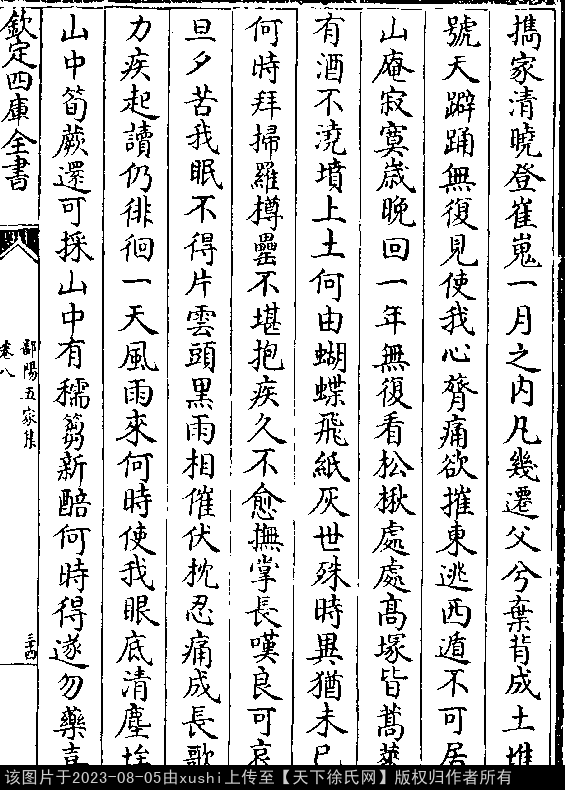 攜家清曉登崔嵬一月之内凡幾遷父兮棄背成土堆
號天躃踊無復見使我心膂痛欲摧東逃西遁不可居
山庵寂寞嵗晚回一年無復看松楸處處髙塚皆蒿萊
有酒不澆墳上土何由蝴蝶飛紙灰世殊時異猶未已
何時拜掃羅樽罍不堪抱疾久不愈撫掌長嘆良可哀
旦夕苦我眠不得片雲頭黒雨相催伏枕忍痛成長歌
力疾起讀仍徘徊一天風雨來何時使我眼底清塵埃
山中筍蕨還可採山中有穤蒭新醅何時得遂勿藥喜
欽定四庫全書
鄱陽五家集
卷八
三四
该图片于2023-08-05由xushi上传至【天下徐氏网】版权归作者所有